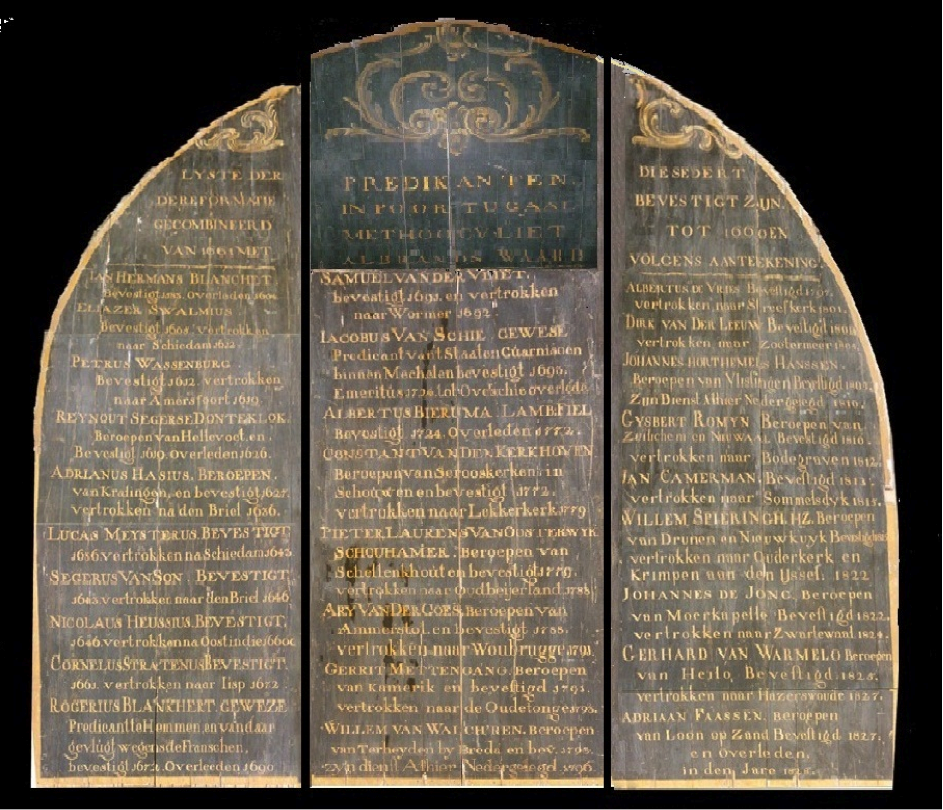 LYSTE DER
DEREFORMATIE
GECOMBINEERD
VAN 1661 MET
JAN HERMANS BLANCHET.
Bevestigt Overleden
ELIAZER SWALMIUS
Bevestigt 1605. vertrokken
naar Schiedam 1612.
PETRUS WASSENBURG
Bevestigt 1612. vertrokken
naar Amersfoort 1619
REYNOUT SEGERSE DONTEKLOK.
Beroepen van Hellevoet. en
Bevestigt 1619. Overleden 1626.
ADRIANUS HASIUS. BEROEPEN.
van Kralingen, en bevestigt 1627.
vertrokken na den Briel 1636.
LUCAS MEYSTERUS. BEVESTIGT
1636 vertrokken na Schiedam 1643
SEGERUS VAN SON. BEVESTIGT.
1643. vertrokken naar den Briel 1646
NICOLAUS HEUSSIUS. BEVESTIGT.
1646. vertrokken na Oostindie
CORNELUS STRATENUS BEVESTIGT.
1661. vertrokken naar Iisp 1672.
ROGERIUS BLANKHERT. GEWEZE
Predicant te Hemmen, en van daar
gevlúgt wegens de Franschen.
bevestigt 1672. Overleeden 1690
PREDIKANTEN.
IN POORTUGAAL
METHOOGVLIET
ALBRANDSWAARD
SAMUEL VAN DER VLIET.
bevestigt 1691. en vertrokken
naar Wormer 1692.
IACOBUS VAN SCHIE GEWESE
Predicant van t Staaten Guarnisoen
binnen Mechelen bevestigt 1693.
Emeritus tot Overschie overleden
ALBERTUS BIERUMA LAMBFIEL
Bevestigt 1724. Overleden 1772.
CONSTANT VAN DER KERKHOVEN
Beroepen van Serooskerken in
Schouwen en bevestigt 1772.
vertrokken naar Lekkerkerk 1779
PIETER LAURENS VAN OOSTERWYK
SCHOUHAMER. Beroepen van
Schellenkhout en bevestigt 1779.
vertrokken naar Oud beijerland 1788.
ARY VAN DER GOES. Beroepen van
Ammerstol. en bevestigt 1788.
vertrokken naar Woubrugge 1791.
GERRIT METTENGANG. Beroepen
van Kamerik en bevestigd 1791.
vertrokken naar de Oudetonge 1793.
WILLEM VAN WALCHREN. Beroepen
van Terheyden by Breda en bev. 1793.
zyn dienst Alhier Nedergelegd 1796
DIE SEDERT
BEVESTIGT ZIJN,
TOT
VOLGENS AANTEEKENING.
ALBERTUS DE VRIES Bevestigd 1797.
vertrokken naar Streefkerk 1801.
DIRK VAN DER LEEUW Bevestigd 1801
vertrokken naar Zoetermeer
JOHANNES HORTHEMELS HANSSEN.
Beroepen van Vlislingen Bevestigd
Zyn Dienst Alhier Nedergelegd 1810.
GYSBERT ROMYN Beroepen van
Zuilichem en Nieuwaal Bevestigd 1810.
vertrokken naar Bodegraven 1812.
JAN CAMERMAN. Bevestigd 1812.
vertrokken naar Sommelsdyk 1815.
WILLEM SPIERINGH. HZ. Beroepen
van Drunen en Nieuwkuyk Bevestigd
vertrokken naar Ouderkerk en
Krimpen aan den IJssel. 1822
JOHANNES DE JONG. Beroepen
van Moerkapelle Bevestigd 1822.
vertrokken naar Zwartewaal 1824.
GERHARD VAN WARMELO Beroepen
van Heilo, Bevestigd. 1825.
vertrokken naar Hazerswoude 1827.
ADRIAAN FAASSEN. Beroepen
van Loon op Zand Bevestigd 1827.
en overleden.
in den Jare